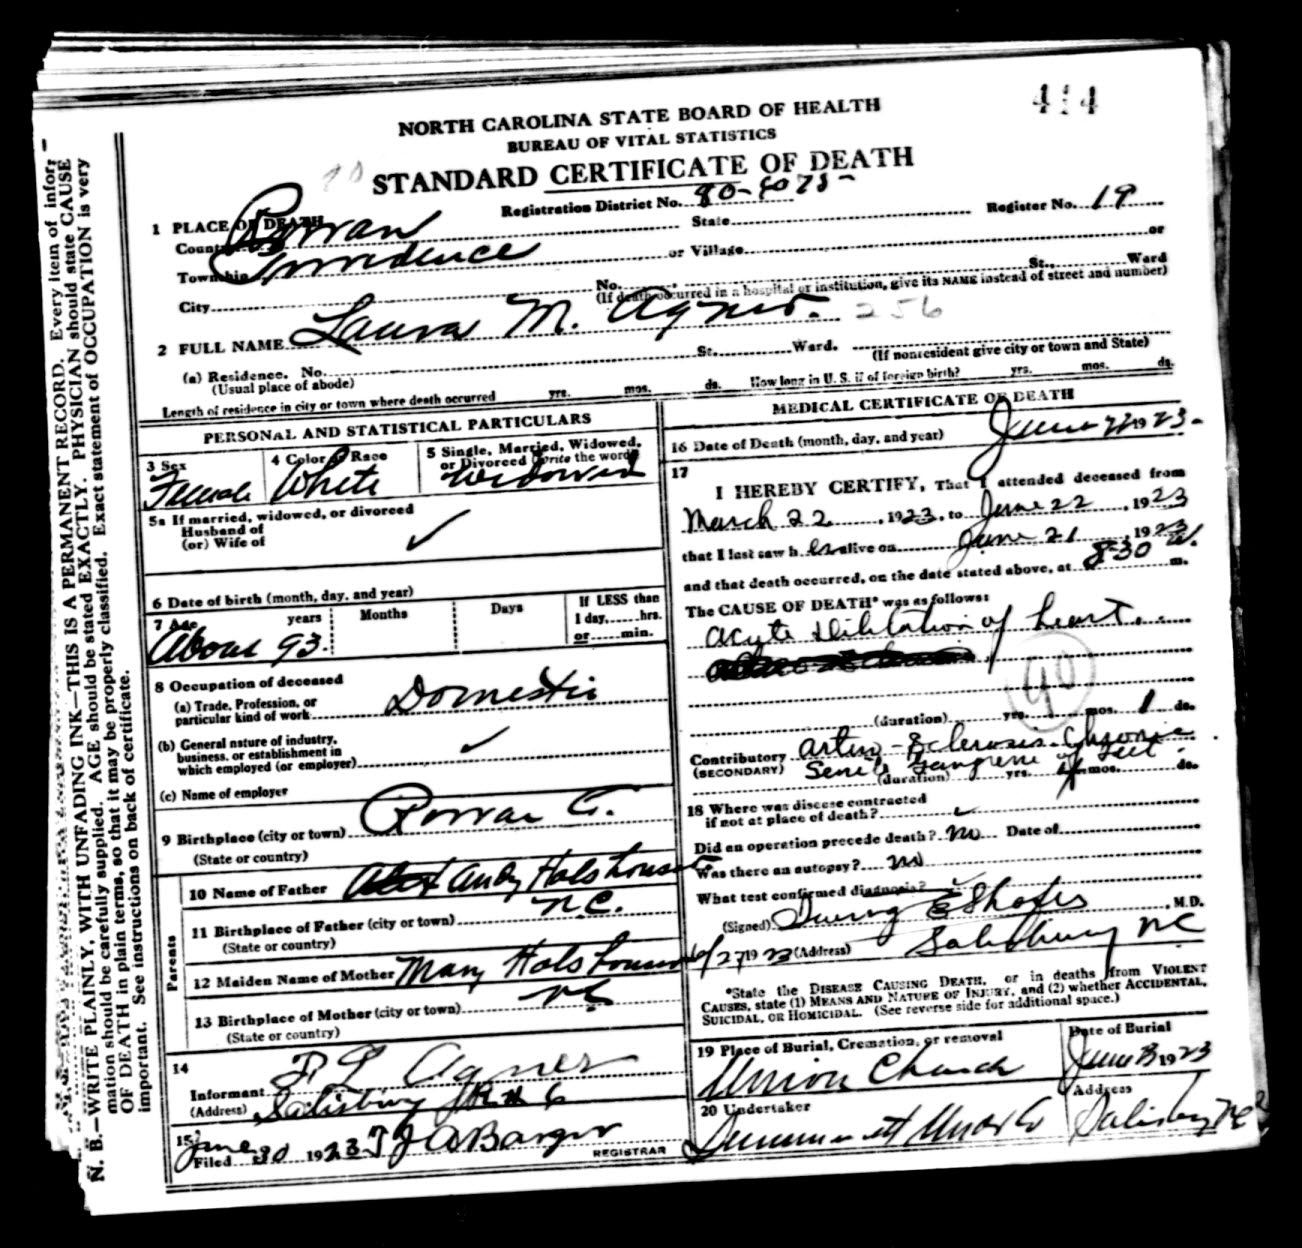 414
NORTH CAROLINA STATE BOARD OF HEALTH
BUREAU OF VITAL STATISTICS
STANDARD CERTIFICATE OF DEATH
1 PLACE OF DEATH
Registration District No. 80-4075-
Register No. 19
County Rowan State
Township Providence or Village or
City No. St., Ward
(If death occurred in a hospital or institution, give its NAME instead of street and number)
2 FULL NAME Laura M. Agner. 256
(a) Residence. No. St. Ward.
(Usual place of abode) (If nonresident give city or town and State)
Length of residence in city or town where death occurred yrs. mos. ds. How long in U. S. if of foreign birth? yrs. mos. ds.
PERSONAL AND STATISTICAL PARTICULARS
3 Sex Female
4 Color or Race White
5 Single, Married, Widowed, or Divorced (write the word) Widowed
5a If married, widowed, or divorced
Husband of
(or) Wife of ✓
6 Date of birth (month, day, and year)
7 Age years Months Days If LESS than
1 day, hrs.
or min.
About 93
8 Occupation of deceased
(a) Trade, Profession, or
particular kind of work Domestic
(b) General nature of industry,
business, or establishment in
which employed (or employer) ✓
(c) Name of employer
9 Birthplace (city or town) Rowan Co.
(State or country)
Parents
10 Name of Father Andy Holshouser
11 Birthplace of Father (city or town) N.C.
(State or country)
12 Maiden Name of Mother Mary Holshouser
13 Birthplace of Mother (city or town) NC
(State or country)
14
Informant Agner
(Address) Salisbury # 6
15
Filed June 30 1923 J A Barger
REGISTRAR
MEDICAL CERTIFICATE OF DEATH
16 Date of Death (month, day, and year) June 22 1923.
17
I HEREBY CERTIFY, That I attended deceased from
March 22, 1923, to June 22, 1923
that I last saw her alive on June 21, 1923
and that death occurred, on the date stated above, at 8-30 a. m.
The CAUSE OF DEATH* was as follows:
Acute Dilitation of heart.
90
(duration) yrs. mos. 1 ds.
Contributory Arterio-Sclerosis-Chronic
(SECONDARY) Senile Gangrene of feet.
(duration) yrs. mos. ds.
18 Where was disease contracted
if not at place of death? ✓
Did an operation precede death? No Date of
Was there an autopsy? No
What test confirmed diagnosis? ✓
(Signed) , M.D.
6/27 1923 (Address) Salisbury NC
*State the DISEASE CAUSING DEATH, or in deaths from VIOLENT
CAUSES, state (1) MEANS AND NATURE OF INJURY, and (2) whether ACCIDENTAL,
SUICIDAL, OR HOMICIDAL. (See reverse side for additional space.)
19 Place of Burial, Cremation, or removal
Union Church
Date of Burial
June 23 1923
20 Undertaker
Summersett Und Co
Address
Salisbury NC
N. B.—WRITE PLAINLY, WITH UNFADING INK—THIS IS A PERMANENT RECORD. Every item of infor-
mation should be carefully supplied. AGE should be stated EXACTLY. PHYSICIAN should state CAUSE
OF DEATH in plain terms, so that it may be properly classified. Exact statement of OCCUPATION is very
important. See instructions on back of certificate.